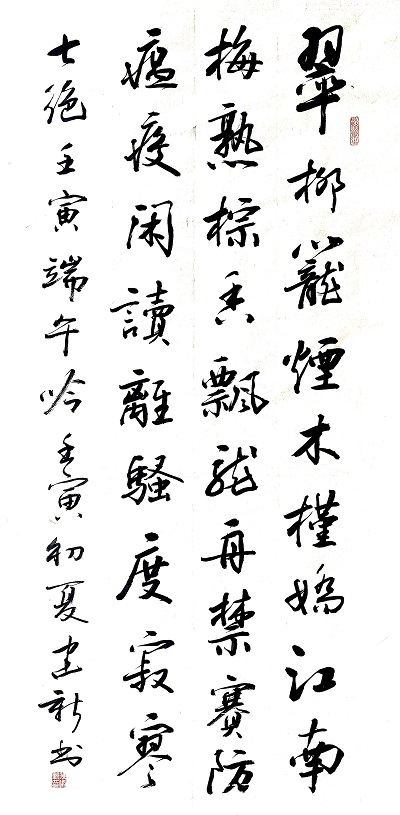 翠柳籠煙木槿嬌江南
梅熟棕香飄龍舟禁賽防
瘟疫闲讀離騷度寂寥
七絶壬寅端午吟壬寅初夏建新书